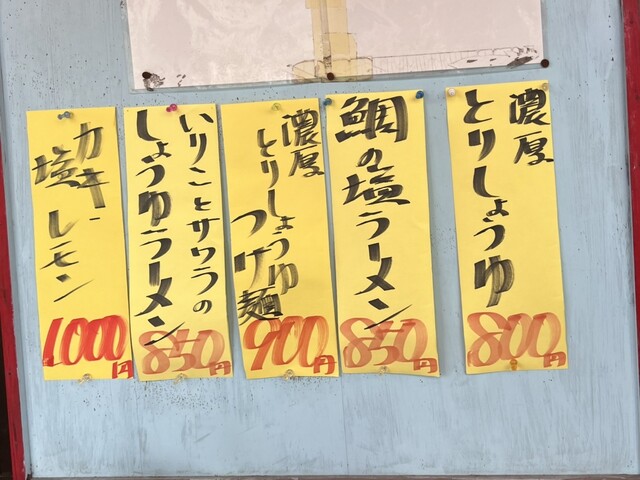 濃厚
とりしょうゆ
800円
鯛の塩ラーメン
850円
濃厚
とりしょうゆ
つけ麺
900円
いりことサワラの
しょうゆラーメン
850円
カキ
塩レモン
1000円